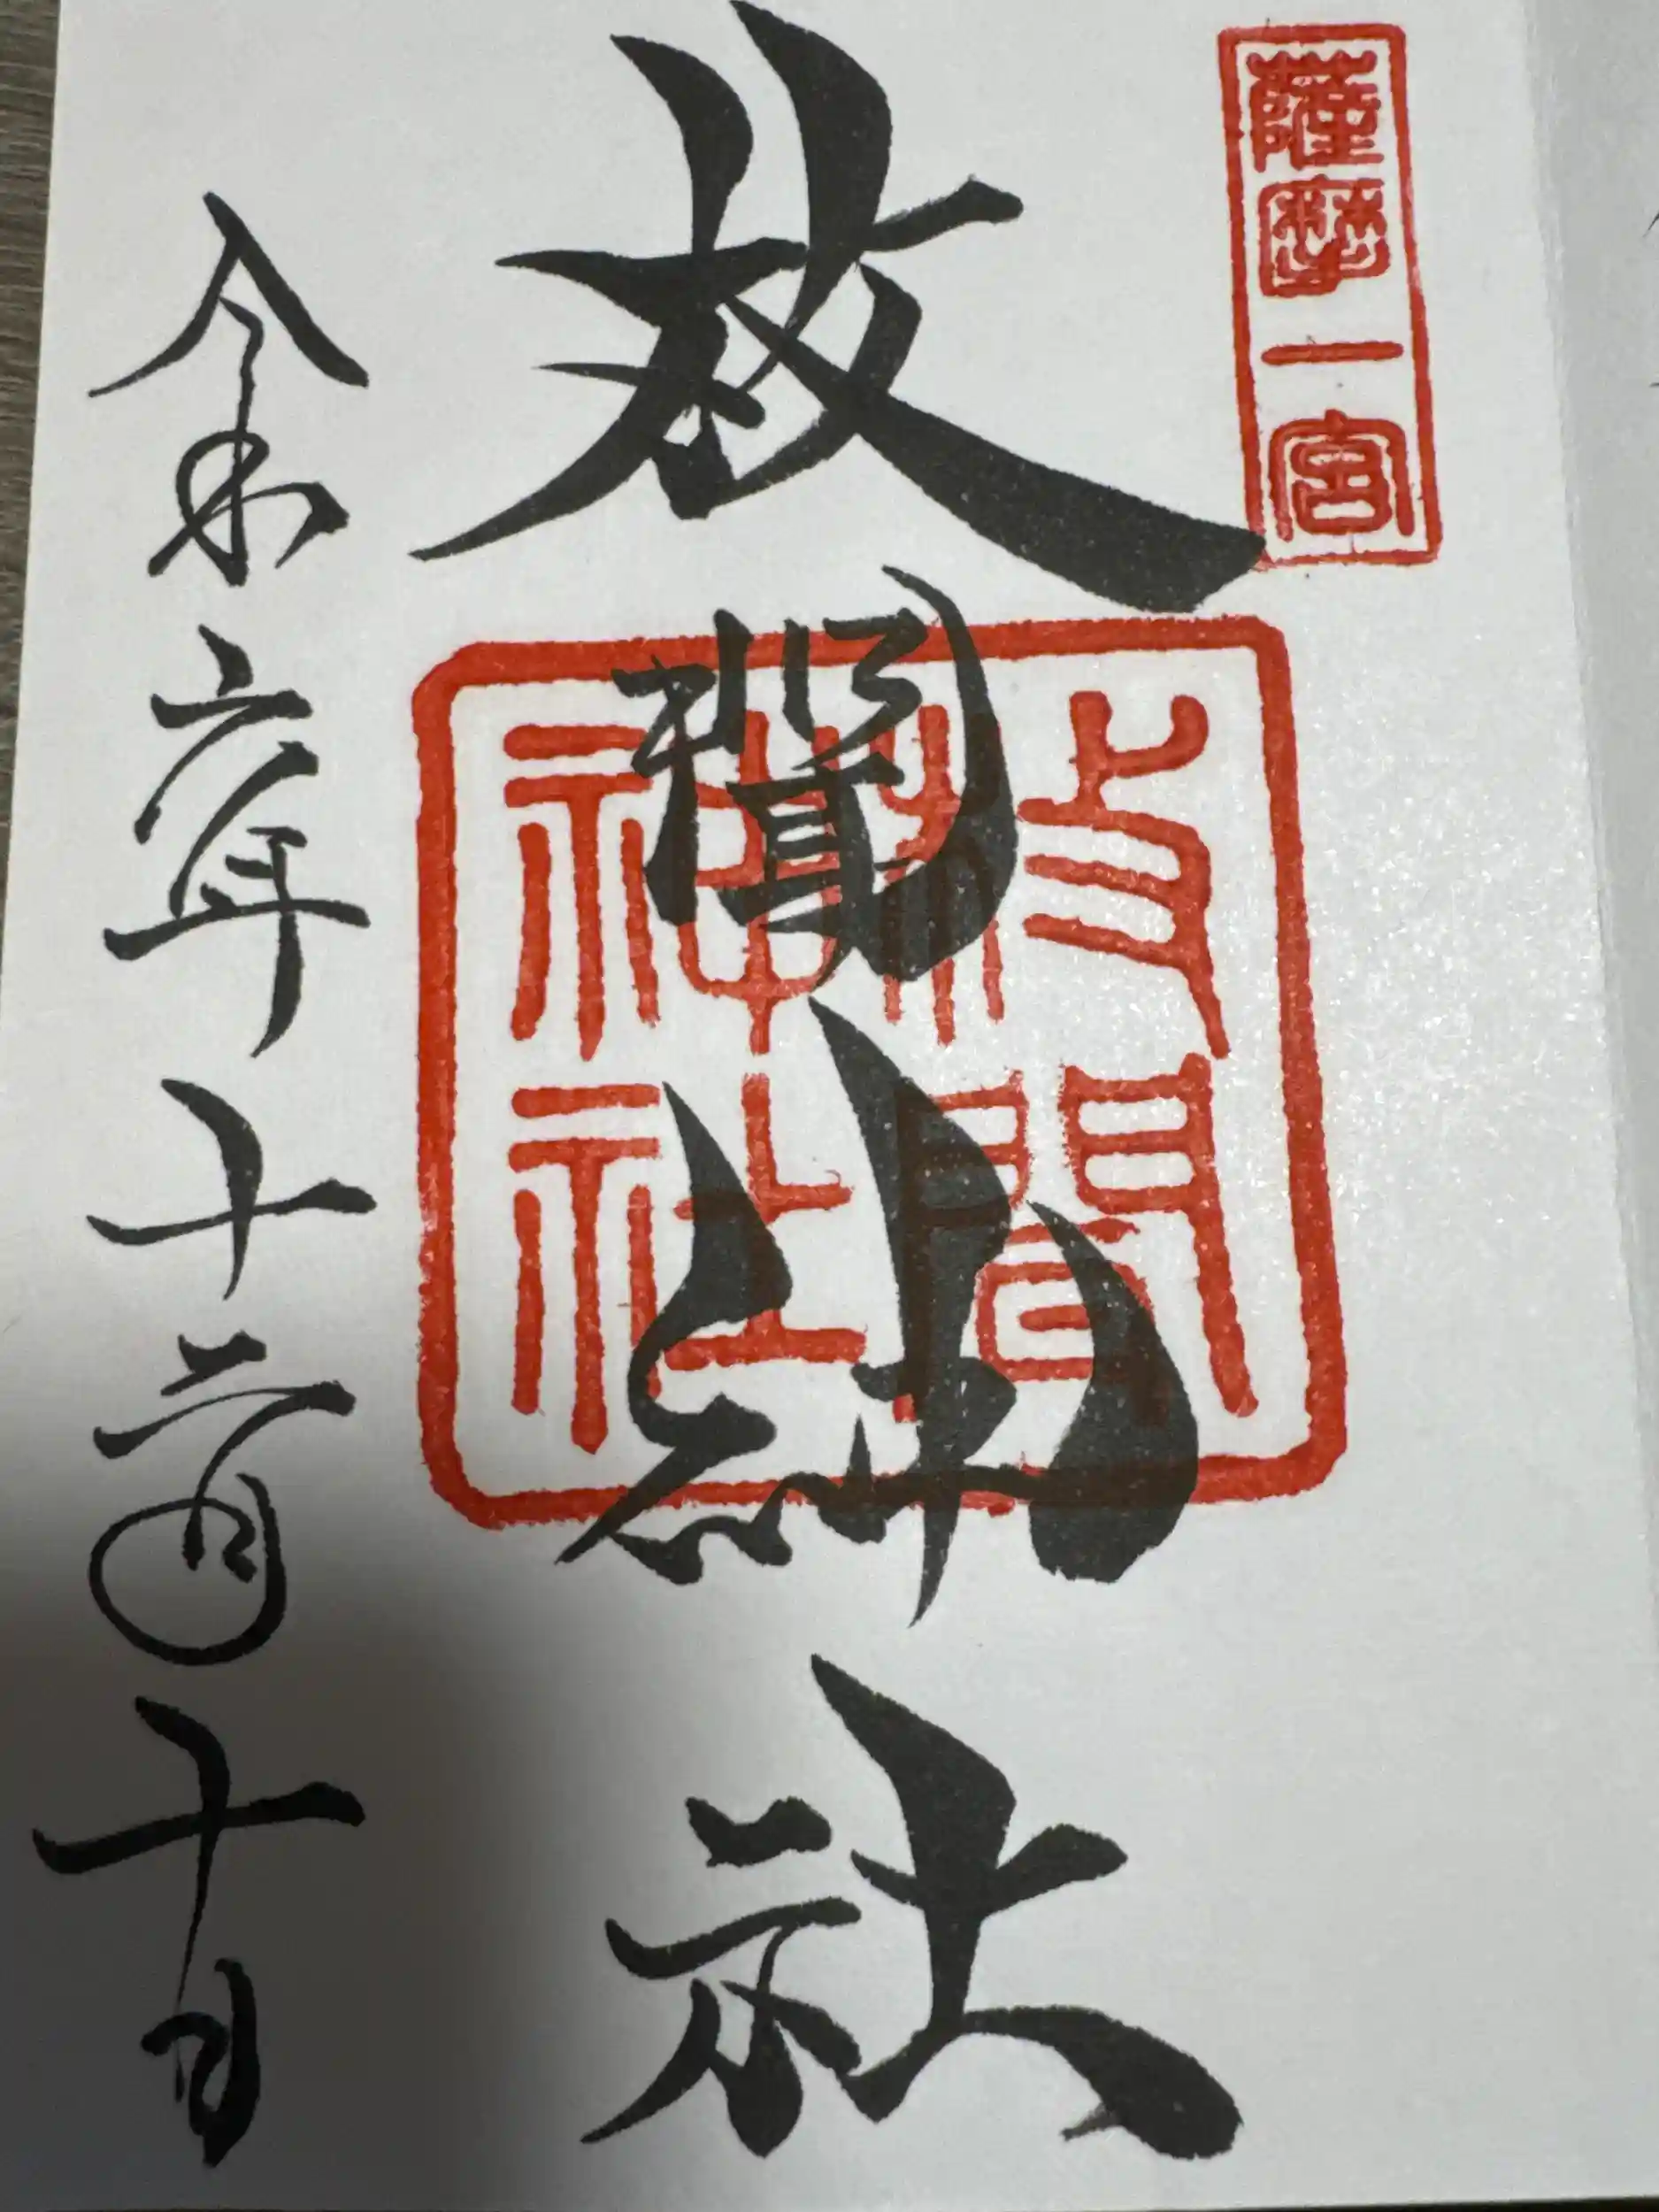 薩摩一宮
枚聞神社
枚聞神社
令和六年十二月十日